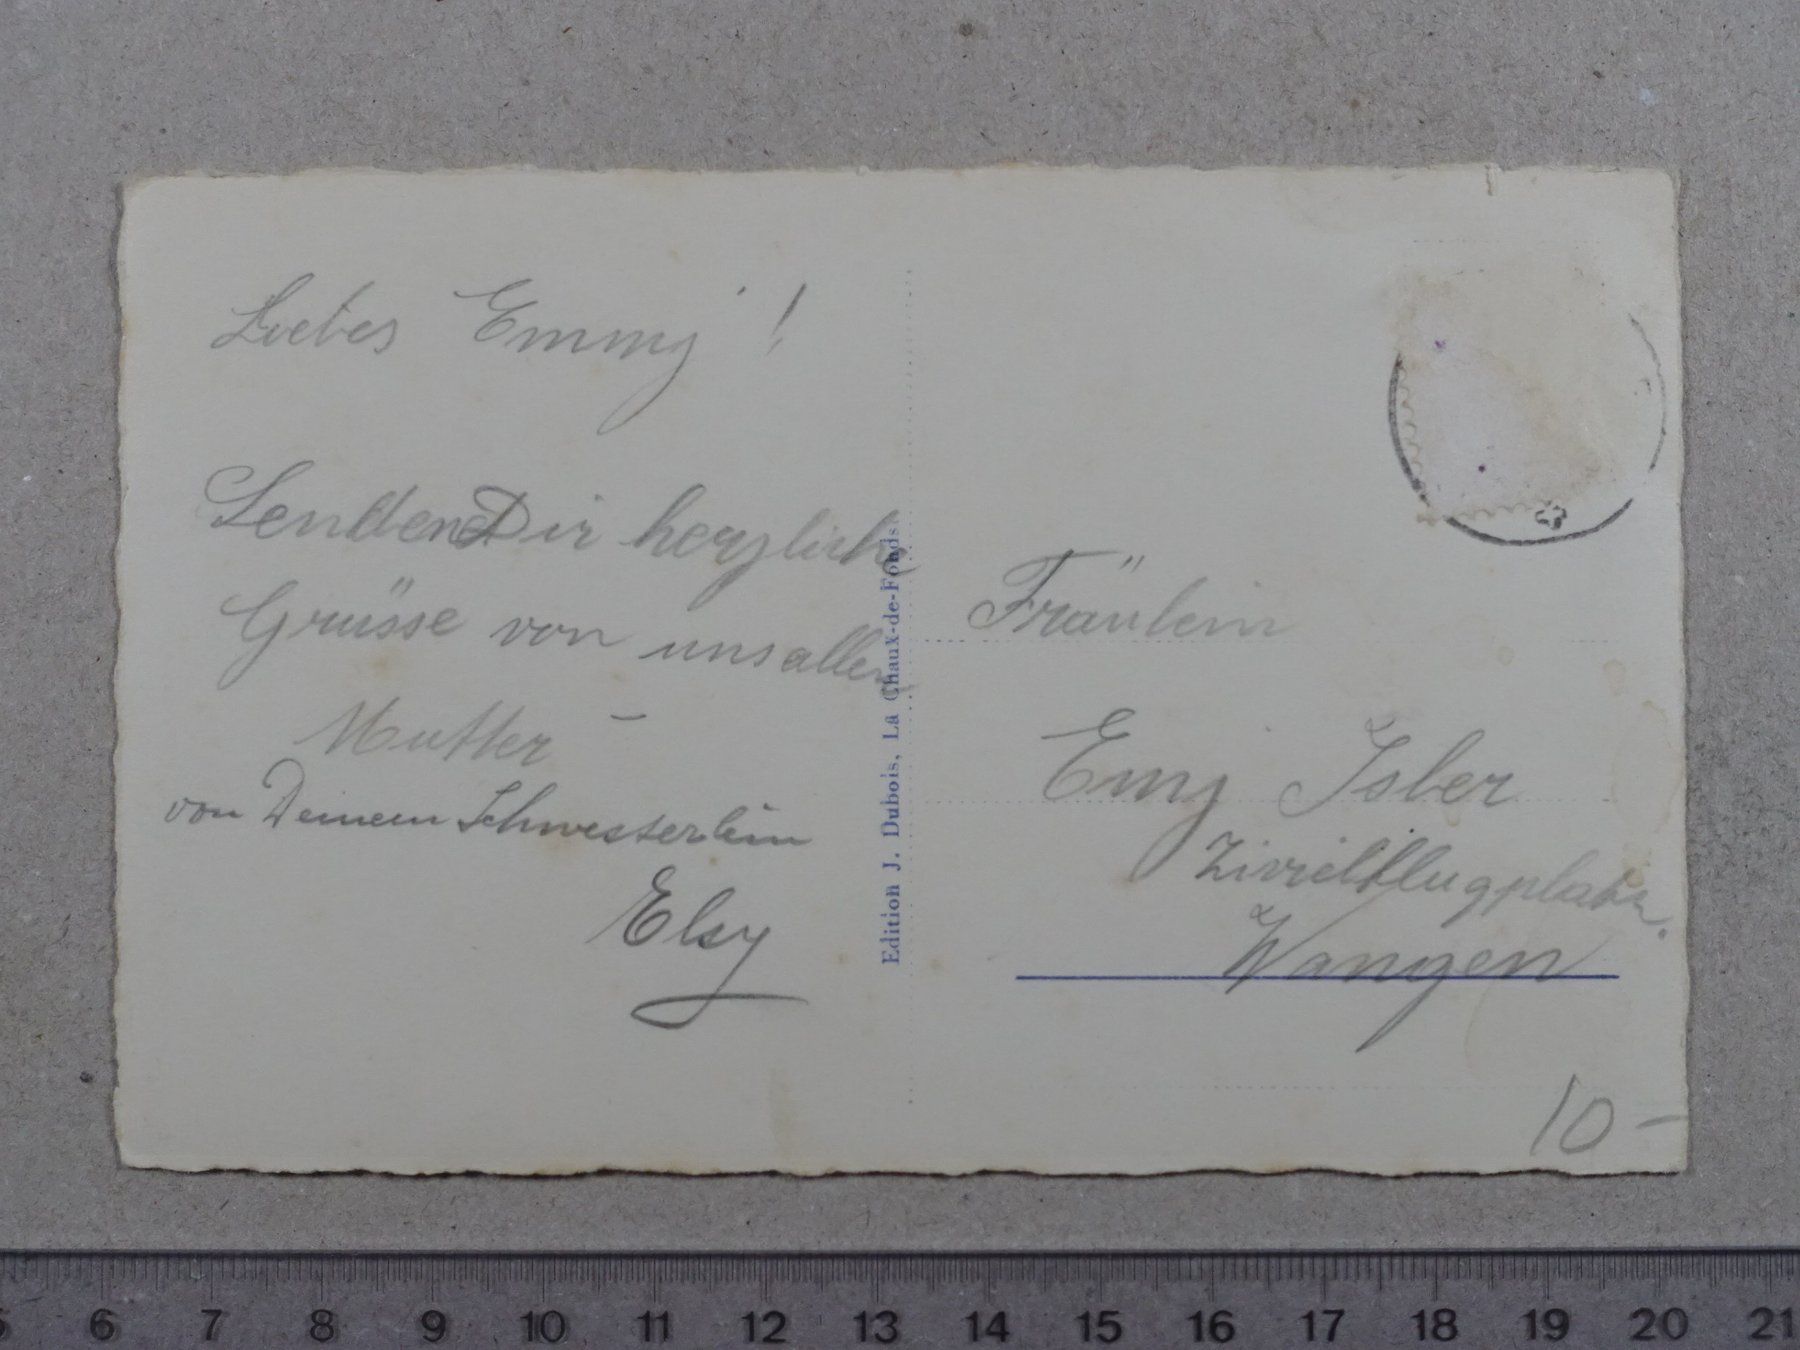 Liebes Emmy!
Senden Dir herzliche
Grüsse von uns allen
Mutter –
von Deinem Schwesterlein
Elsy
Edition J. Dubois, La Chaux-de-Fonds
Fräulein
Emy Isler
Zivielflugplatz.
Wangen
10 –
5 6 7 8 9 10 11 12 13 14 15 16 17 18 19 20 21